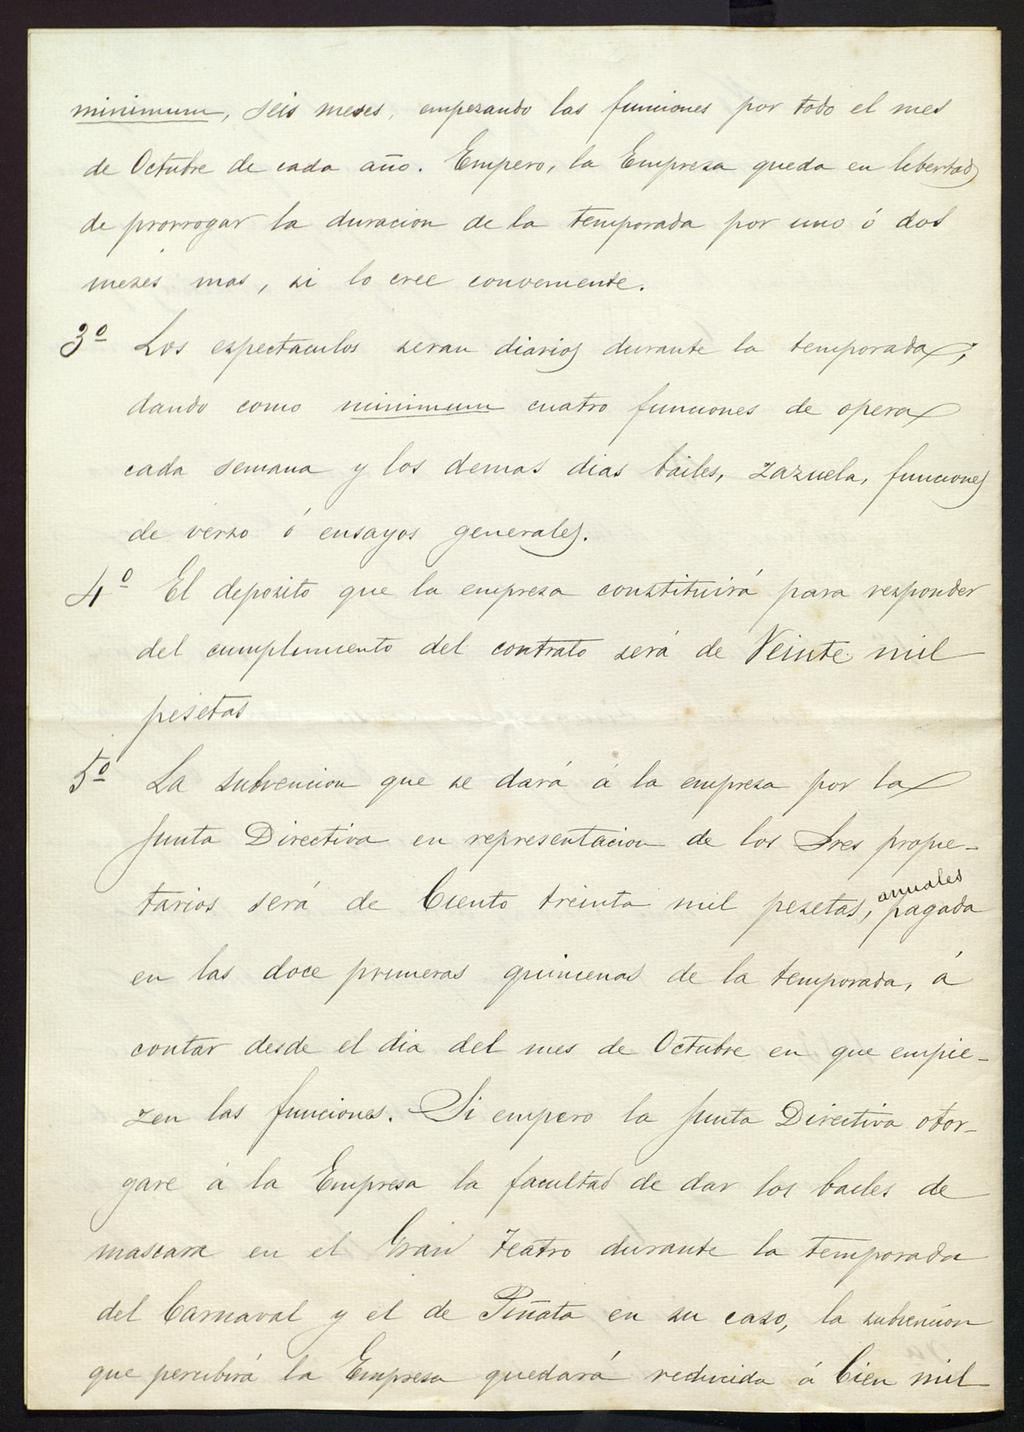 minimum, seis meses, empezando las funciones por todo el mes
de Octubre de cada año. Empero, la Empresa queda en libertad
de prorrogar la duracion de la temporada por uno ó dos
meses mas, si lo cree conveniente.
3º Los espectaculos seran diarios durante la temporada,
dando como minimum cuatro funciones de opera
cada semana y los demas dias bailes, zazuela, funciones
de verso ó ensayos generales.
4º El deposito que la empresa constituirá para responder
del cumplimiento del contrato será de Veinte mil
pesetas
5º La subvencion que se dará á la empresa por la
Junta Directiva en representacion de los Sres propie-
tarios será de Ciento treinta mil pesetas, anuales pagada
en las doce primeras quincenas de la temporada, á
contar desde el dia del mes de Octubre en que empie-
zen las funciones. Si empero la Junta Directiva otor-
gare á la Empresa la facultad de dar los bailes de
mascara en el Gran Teatro durante la temporada
del Carnaval y el de Piñata en su caso, la subvencion
que percibirá la Empresa quedará reducida á Cien mil